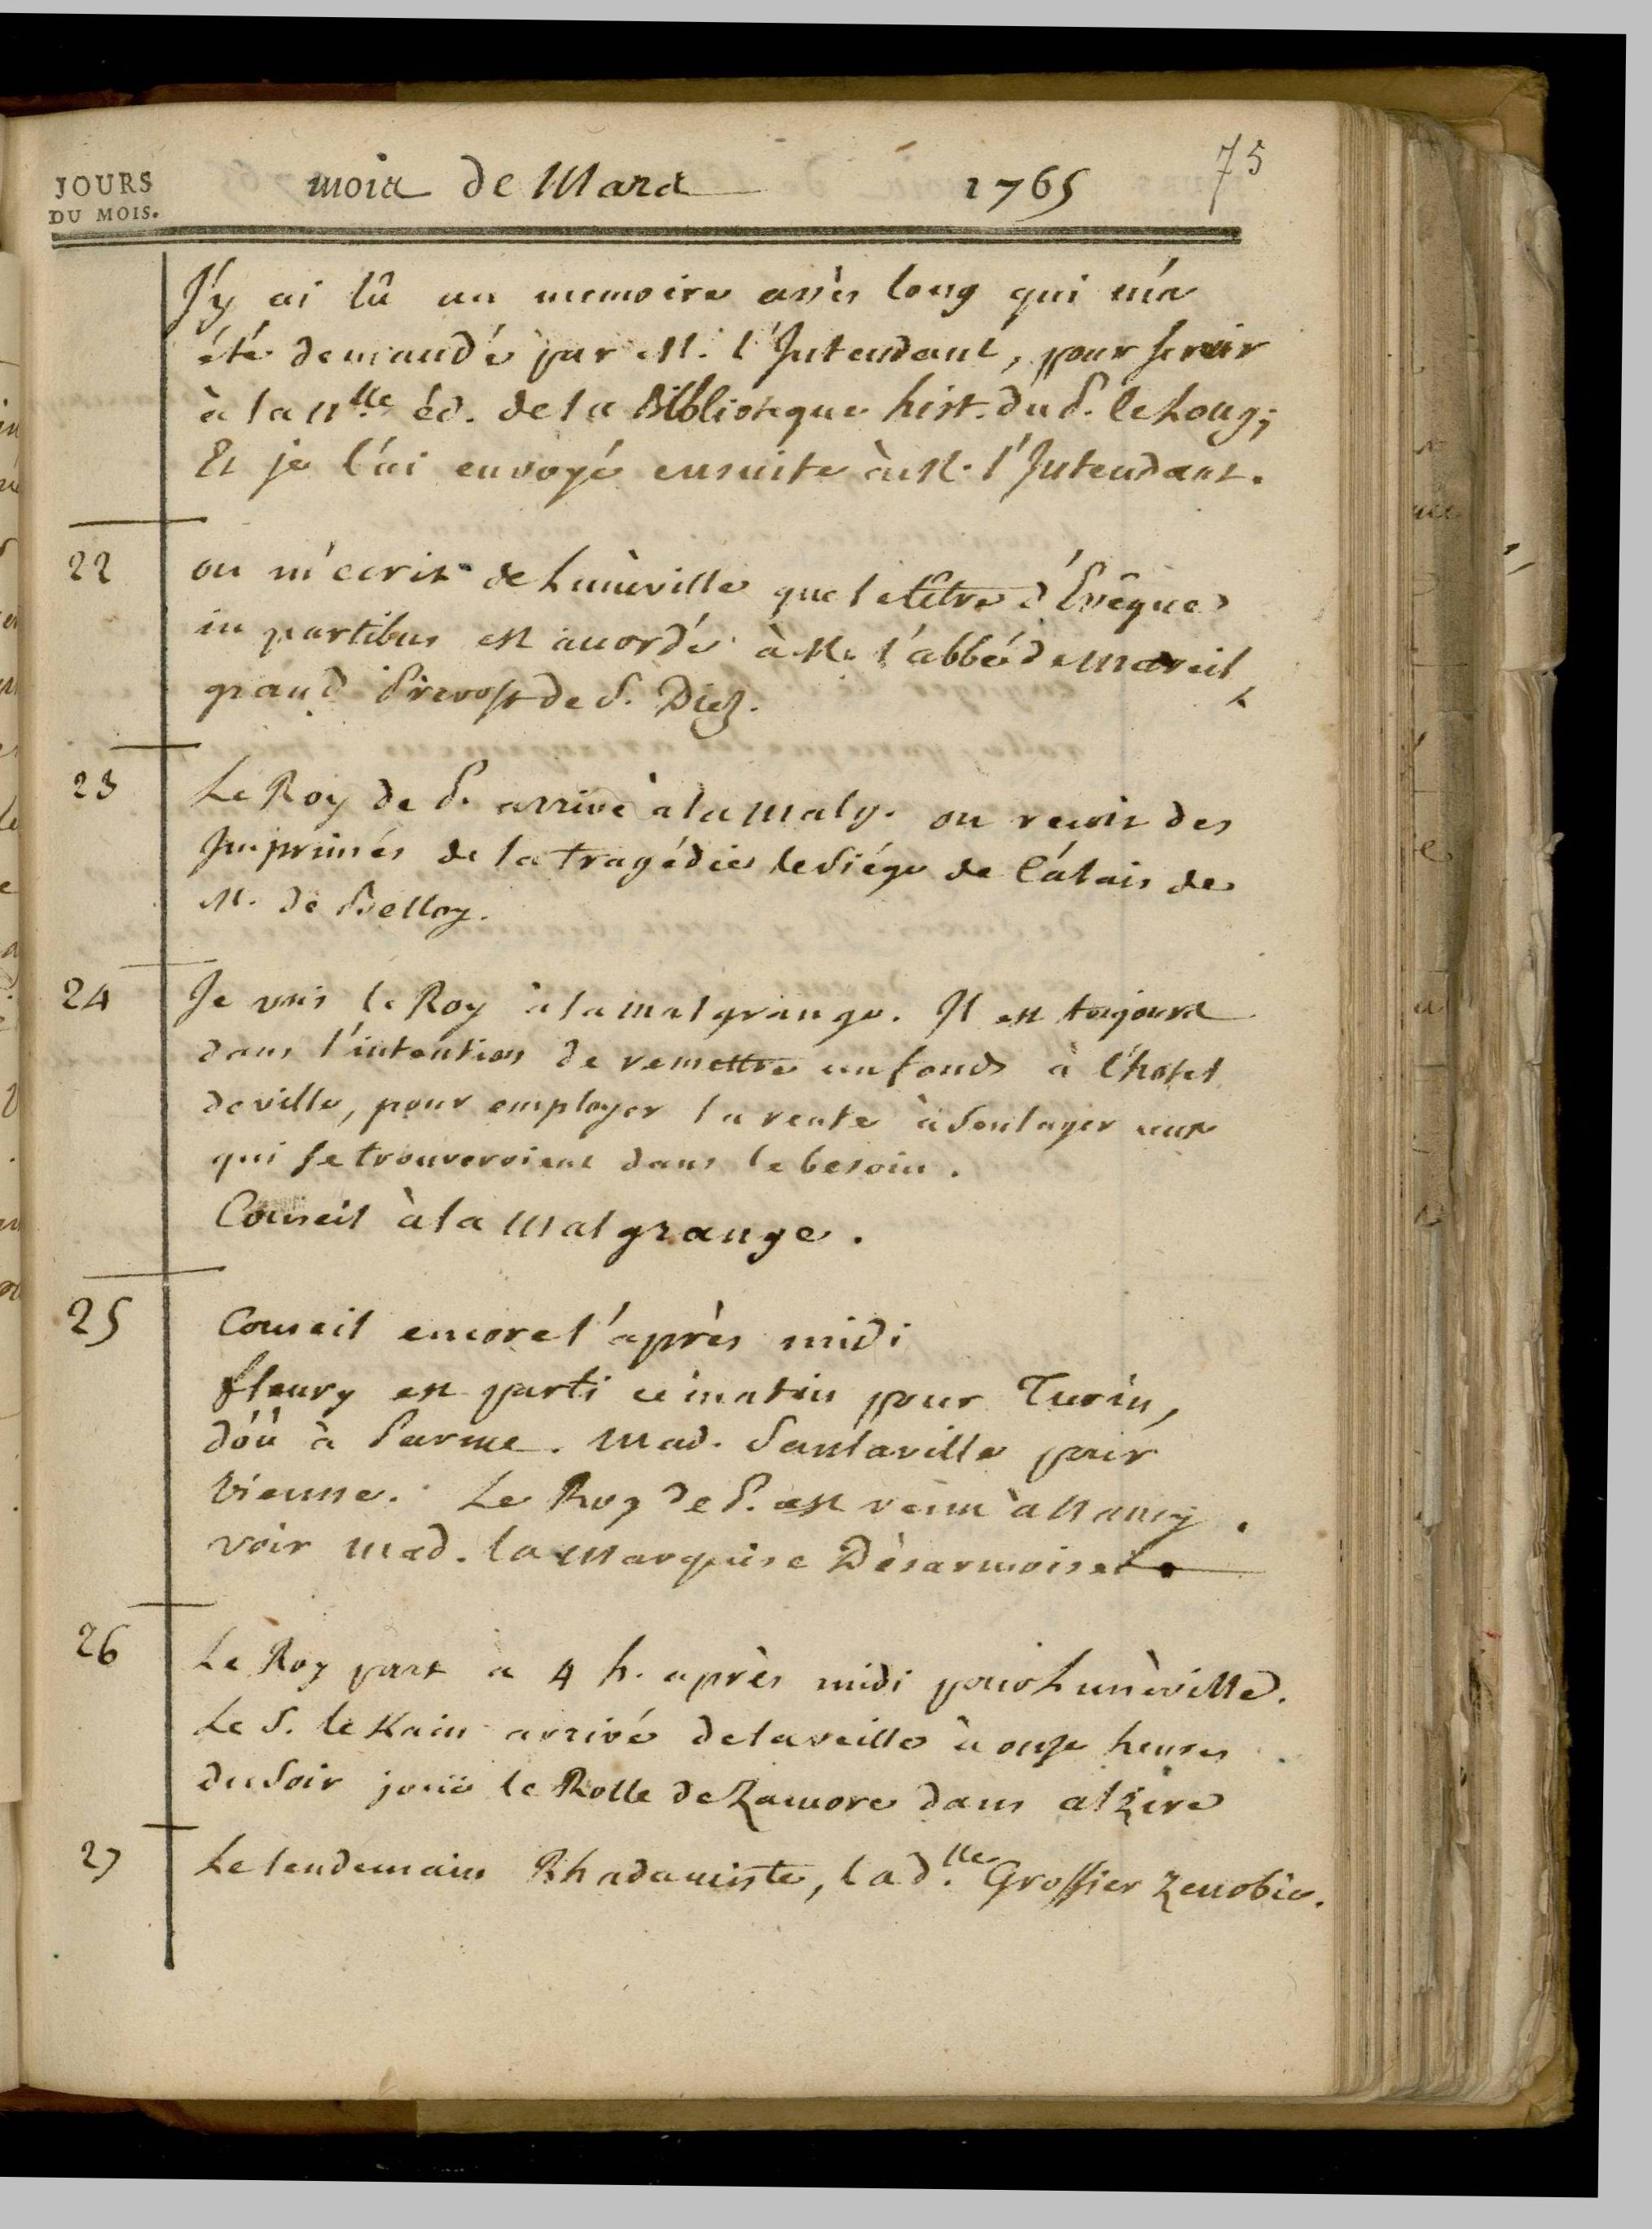 JOURS
DU MOIS.
mois de Mars 1765 75
J'y ai lû un memoire assès long qui m'a
été demandé par M. l'Intendant, pour servir
à la nlle éd. de la Biblioteque hist. du P. le Long;
Et je l'ai envoyé ensuite à M. l'Intendant.
22 on m'ecrit de Lunéville que le titre d'Evêque
in partibus est accordé à M. l'abbé de Mareil,
grand Prevost de S. Diez.
23 Le Roy de P. arrive à la Malg. on reçoit des
Imprimés de la tragédie le Siége de Calais de
M. de Belloy.
24 Je vois le Roy à la malgrange. Il est toujours
dans l'intention de remettre un fonds à l'hotel
de ville, pour employer la rente à Soulager ceux
qui se trouveroient dans le besoin.
Conseil à la Malgrange.
25 Conseil encore l'après midi
fleury est parti ce matin pour Turin,
d'où à Parme. Mad. Santaville pour
Vienne. Le Roy de P. est venu à Nancy.
voir Mad. la Marquise Désarmoises.
26 Le Roy part à 4 h. après midi pour Lunéville.
Le S. le Kain arrivé de la veille à onze heures
du Soir joüe le Rolle de Zamore dans alzire
27 Le lendemain Rhadamiste, la dlle. Grossier Zenobie.